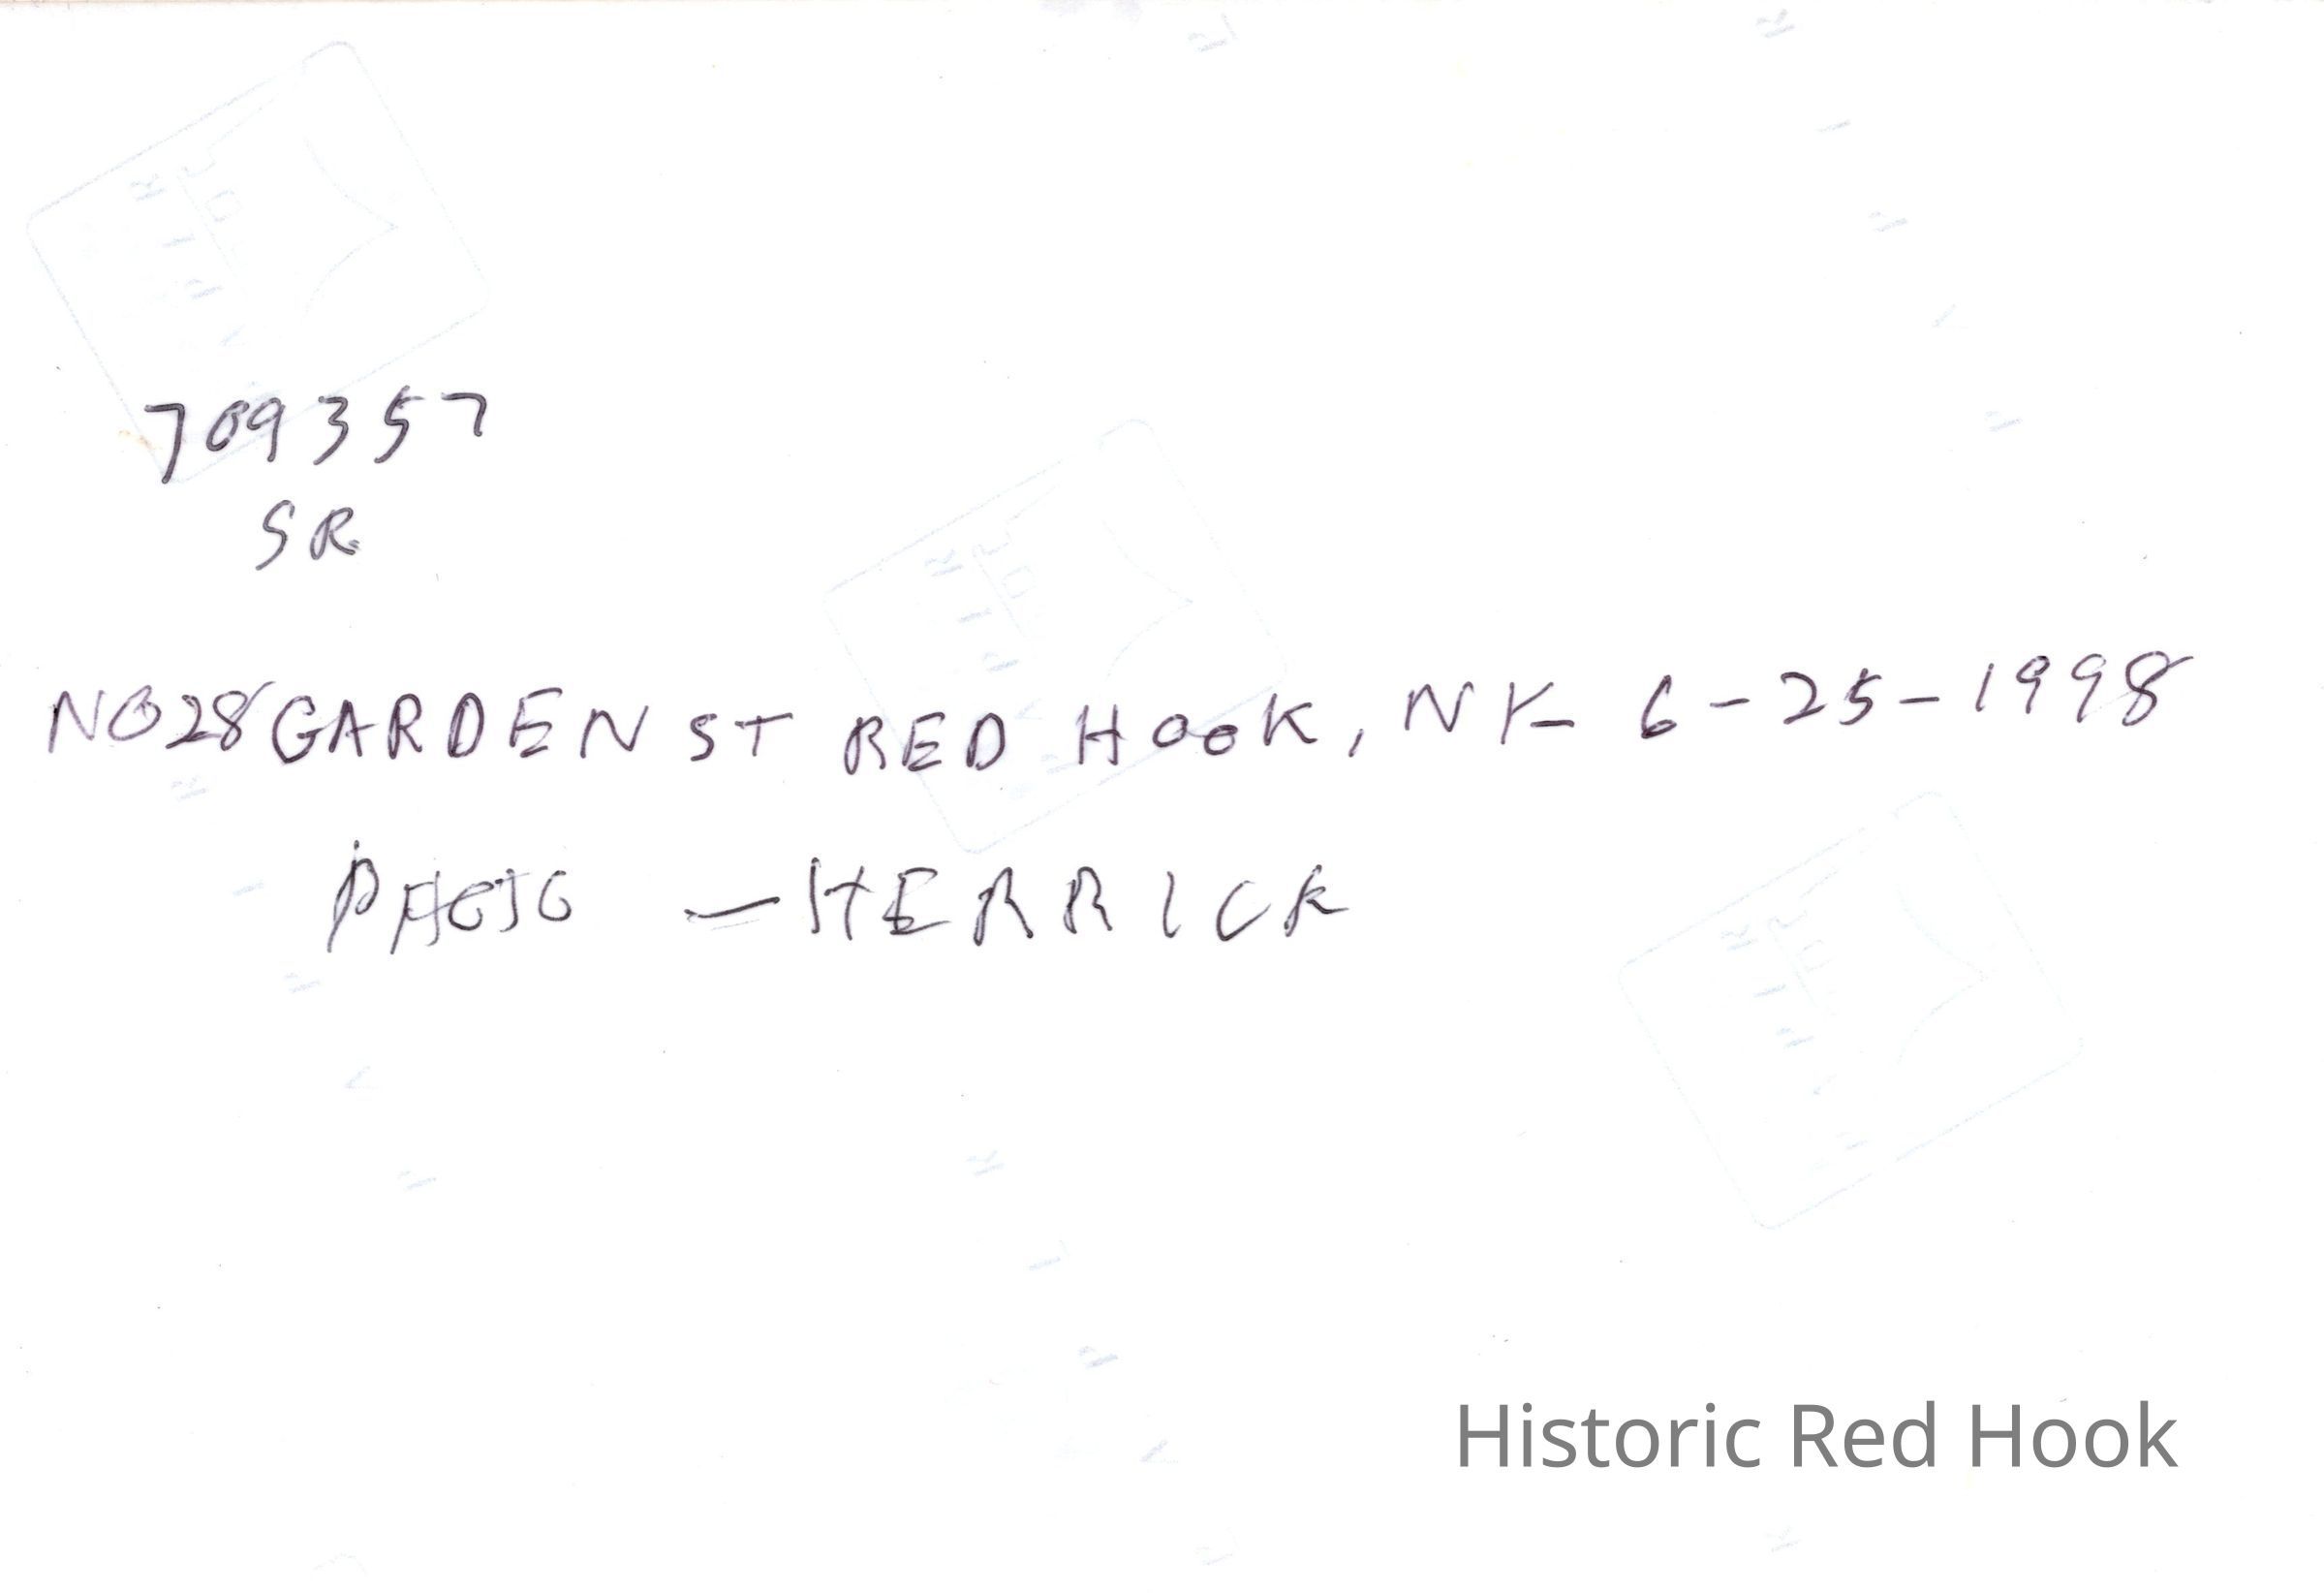 709357
SR
NO 28 GARDEN ST RED HOOK, NY - 6-25-1998
PHOTO - HERRICK
Historic Red Hook